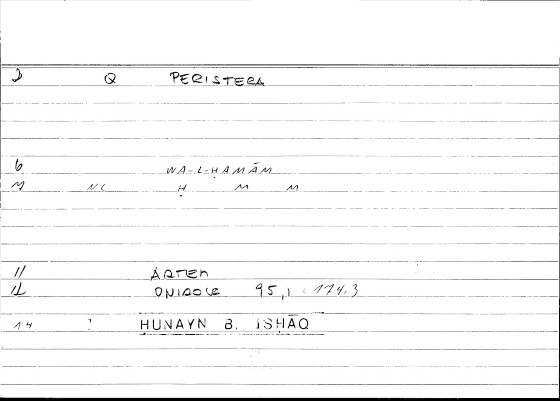 2 Q PERISTERA
6 WA-L-ḤAMĀM
M NC Ḥ M M
11 ARTEM
12 ONIROCR 95,1 : 174.3
14 HUNAYN B. ISHĀQ